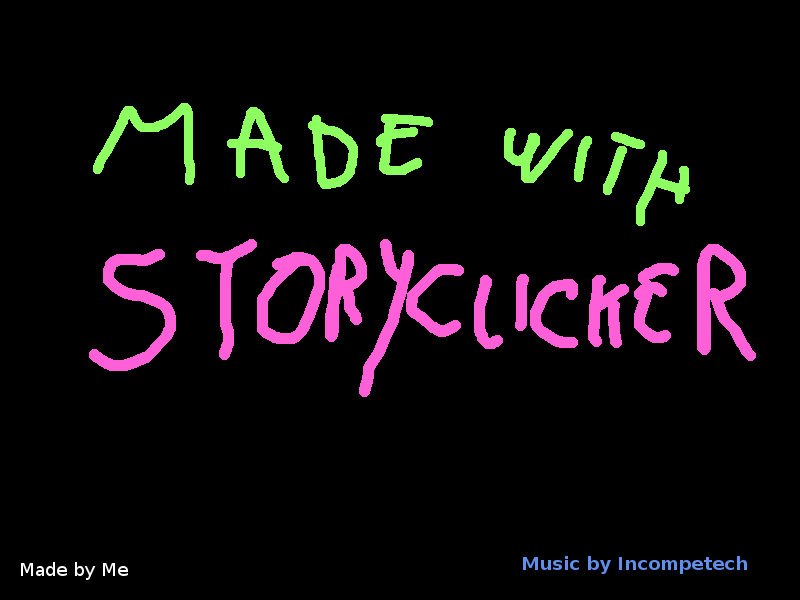 MADE WITH
STORYCLICKER
Made by Me
Music by Incompetech